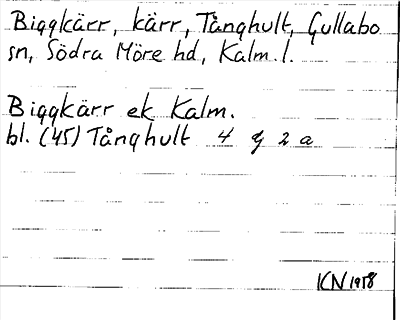 Biggkärr, kärr, Tånghult, Gullabo
sn, Södra Möre hd, Kalm. l.
Biggkärr ek Kalm.
bl. (45) Tånghult 4 g 2 a
KN 1958